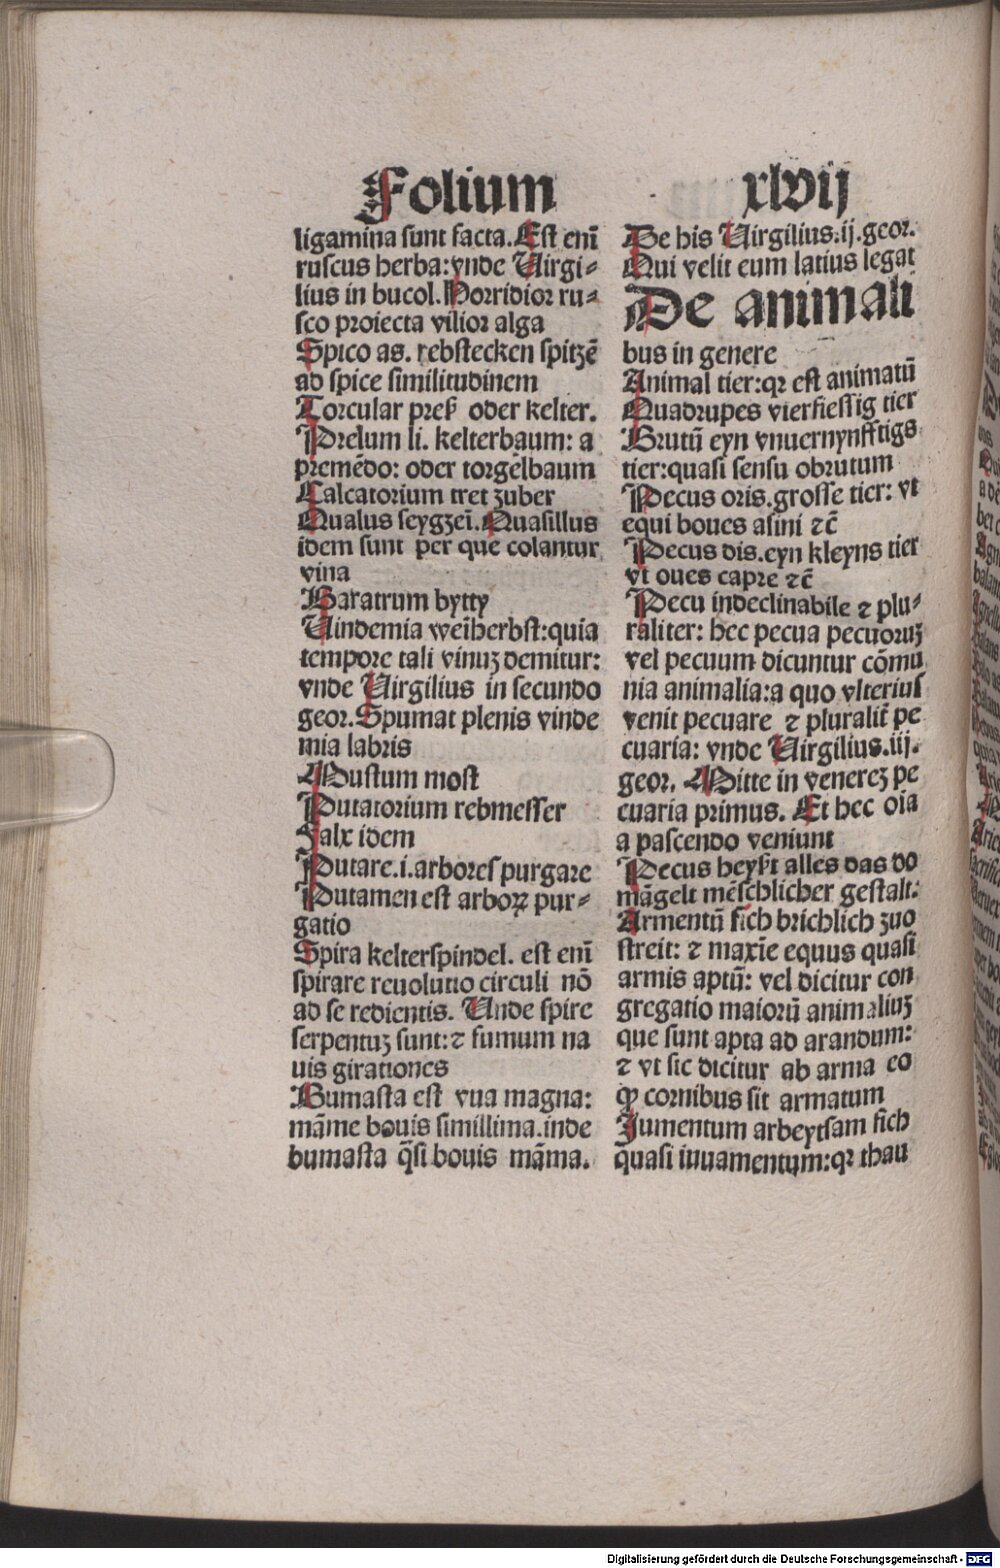 Folium xlvij
ligamina sunt facta. Est eni̅
ruscus herba: vnde Uirgi-
lius in bucol. Horridior ru-
sco proiecta vilior alga
Spico as. rebstecken spitze̅
ad spice similitudinem
Torcular preß oder kelter.
Prelum li. kelterbaum: a
preme̅do: oder torgelbaum
Calcatorium tret zuber
Qualus seygzei̅. Quasillus
idem sunt per que colantur
vina
Baratrum bytty
Uindemia wei̅herbst: quia
tempore tali vinuz demitur:
vnde Uirgilius in secundo
geor. Spumat plenis vinde
mia labris
Mustum most
Putatorium rebmesser
Falx idem
Putare .i. arbores purgare
Putamen est arborꝝ pur-
gatio
Spira kelterspindel. est eni̅
spirare reuolutio circuli no̅
ad se redientis. Unde spire
serpentuz sunt: ⁊ fumum na
uis girationes
Bumasta est vua magna:
ma̅me bouis simillima. inde
bumasta q̅si bouis ma̅ma.
De his Uirgilius .ij. geor.
Qui velit eum latius legat
De animali
bus in genere
Animal tier: qꝛ est animatu̅
Quadrupes vierfiessig tier
Brutu̅ eyn vnuernynfftigs
tier: quasi sensu obrutum
Pecus oris. grosse tier: vt
equi boues asini ⁊c̅
Pecus dis. eyn kleyns tier
vt oues capre ⁊c̅
Pecu indeclinabile ⁊ plu-
raliter: hec pecua pecuoruz
vel pecuum dicuntur co̅mu
nia animalia: a quo vlterius
venit pecuare ⁊ pluralit̅ pe
cuaria: vnde Uirgilius .iij.
geor. Mitte in venerez pe
cuaria primus. Et hec oi̅a
a pascendo veniunt
Pecus heyßt alles das do
ma̅gelt me̅schlicher gestalt:
Armentu̅ fich brichlich zuo
streit: ⁊ maxi̅e equus quasi
armis aptu̅: vel dicitur con
gregatio maioru̅ animaliuz
que sunt apta ad arandum:
⁊ vt sic dicitur ab arma eo
ꝙ cornibus sit armatum
Jumentum arbeytsam fich
quasi iuuamentum: qꝛ thau
Digitalisierung gefördert durch die Deutsche Forschungsgemeinschaft - DFG